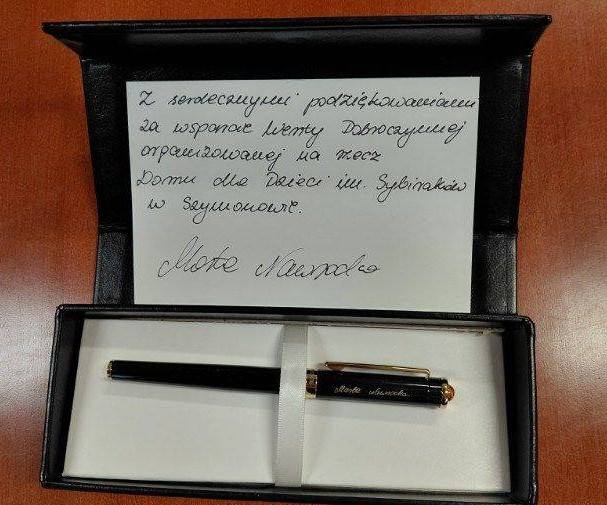 Z serdecznymi podziękowaniami
za wsparcie Wenty Dobroczynnej
organizowanej na rzecz
Domu dla Dzieci im. Sybiraków
w Szymonowie.
Marta
Marta